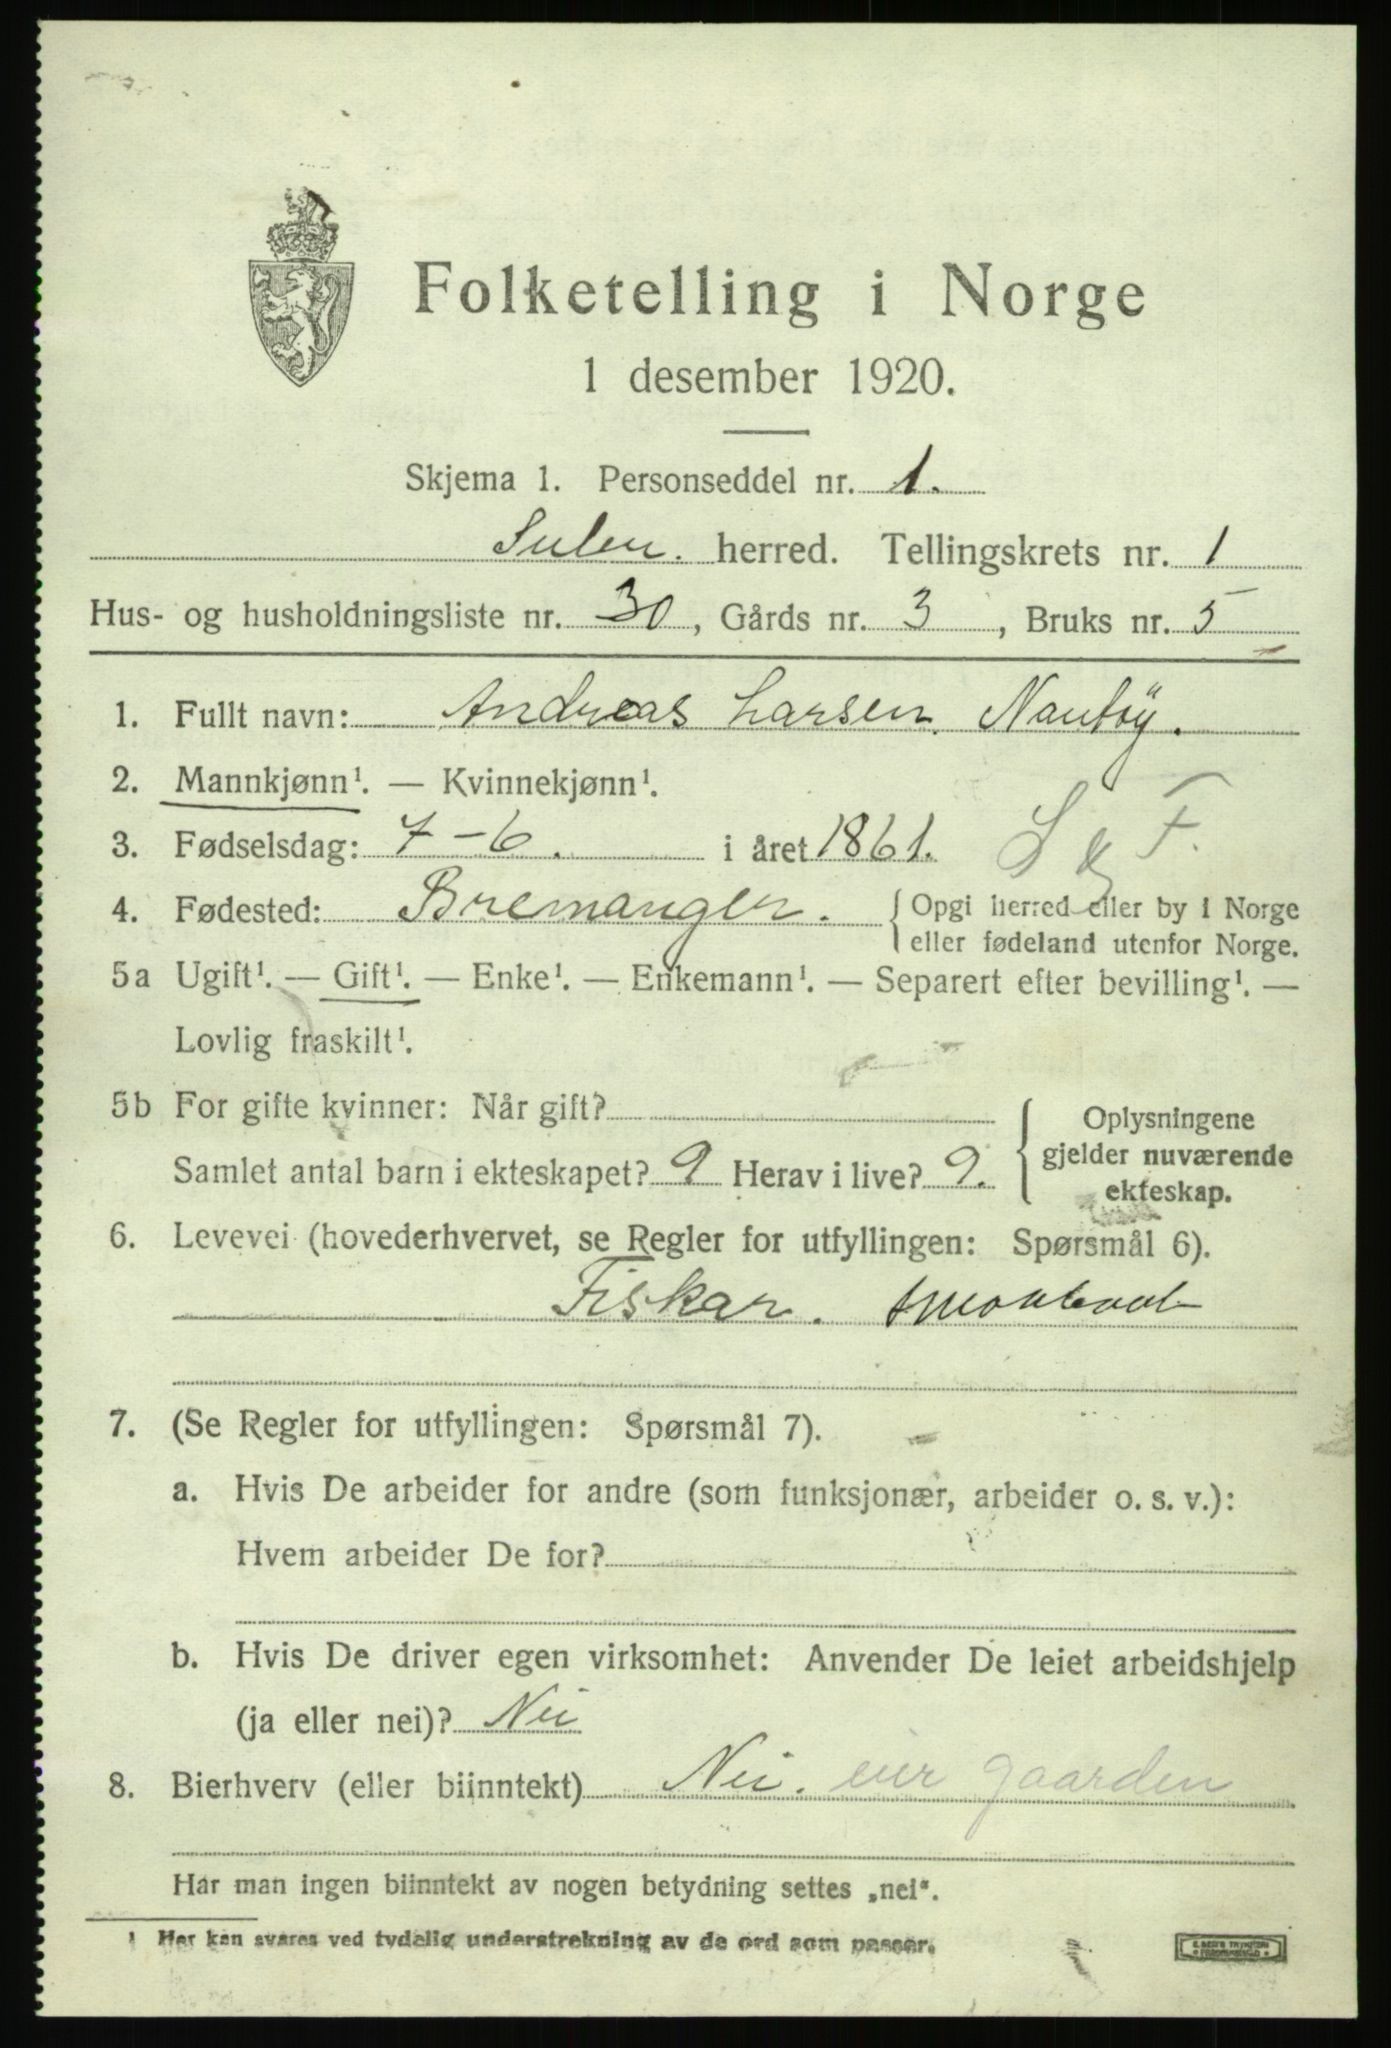 Folketelling i Norge
1 desember 1920.
Skjema 1. Personseddel nr. 1.
Sulen. herred. Tellingskrets nr. 1
Hus- og husholdningsliste nr. 30, Gårds nr. 3, Bruks nr. 5
1. Fullt navn: Andreas Larsen. Nautöy.
2. Mannkjønn¹. — Kvinnekjønn¹.
3. Fødselsdag: 7-6. i året 1861. S & F.
4. Fødested: Bremanger. { Opgi herred eller by i Norge
eller fødeland utenfor Norge.
5a Ugift¹. — Gift¹. — Enke¹. — Enkemann¹. — Separert efter bevilling¹. —
Lovlig fraskilt¹.
5b For gifte kvinner: Når gift? { Oplysningene
gjelder nuværende
Samlet antal barn i ekteskapet? 9 Herav i live? 9.
ekteskap.
6. Levevei (hovederhvervet, se Regler for utfyllingen: Spørsmål 6).
Fiskar.
7. (Se Regler for utfyllingen: Spørsmål 7).
a. Hvis De arbeider for andre (som funksjonær, arbeider o. s. v.):
Hvem arbeider De for?
b. Hvis De driver egen virksomhet: Anvender De leiet arbeidshjelp
(ja eller nei)? Nei
8. Bierhverv (eller biinntekt) Nei. eier gaarden
Har man ingen biinntekt av nogen betydning settes „nei“.
¹ Her kan svares ved tydelig understrekning av de ord som passer.